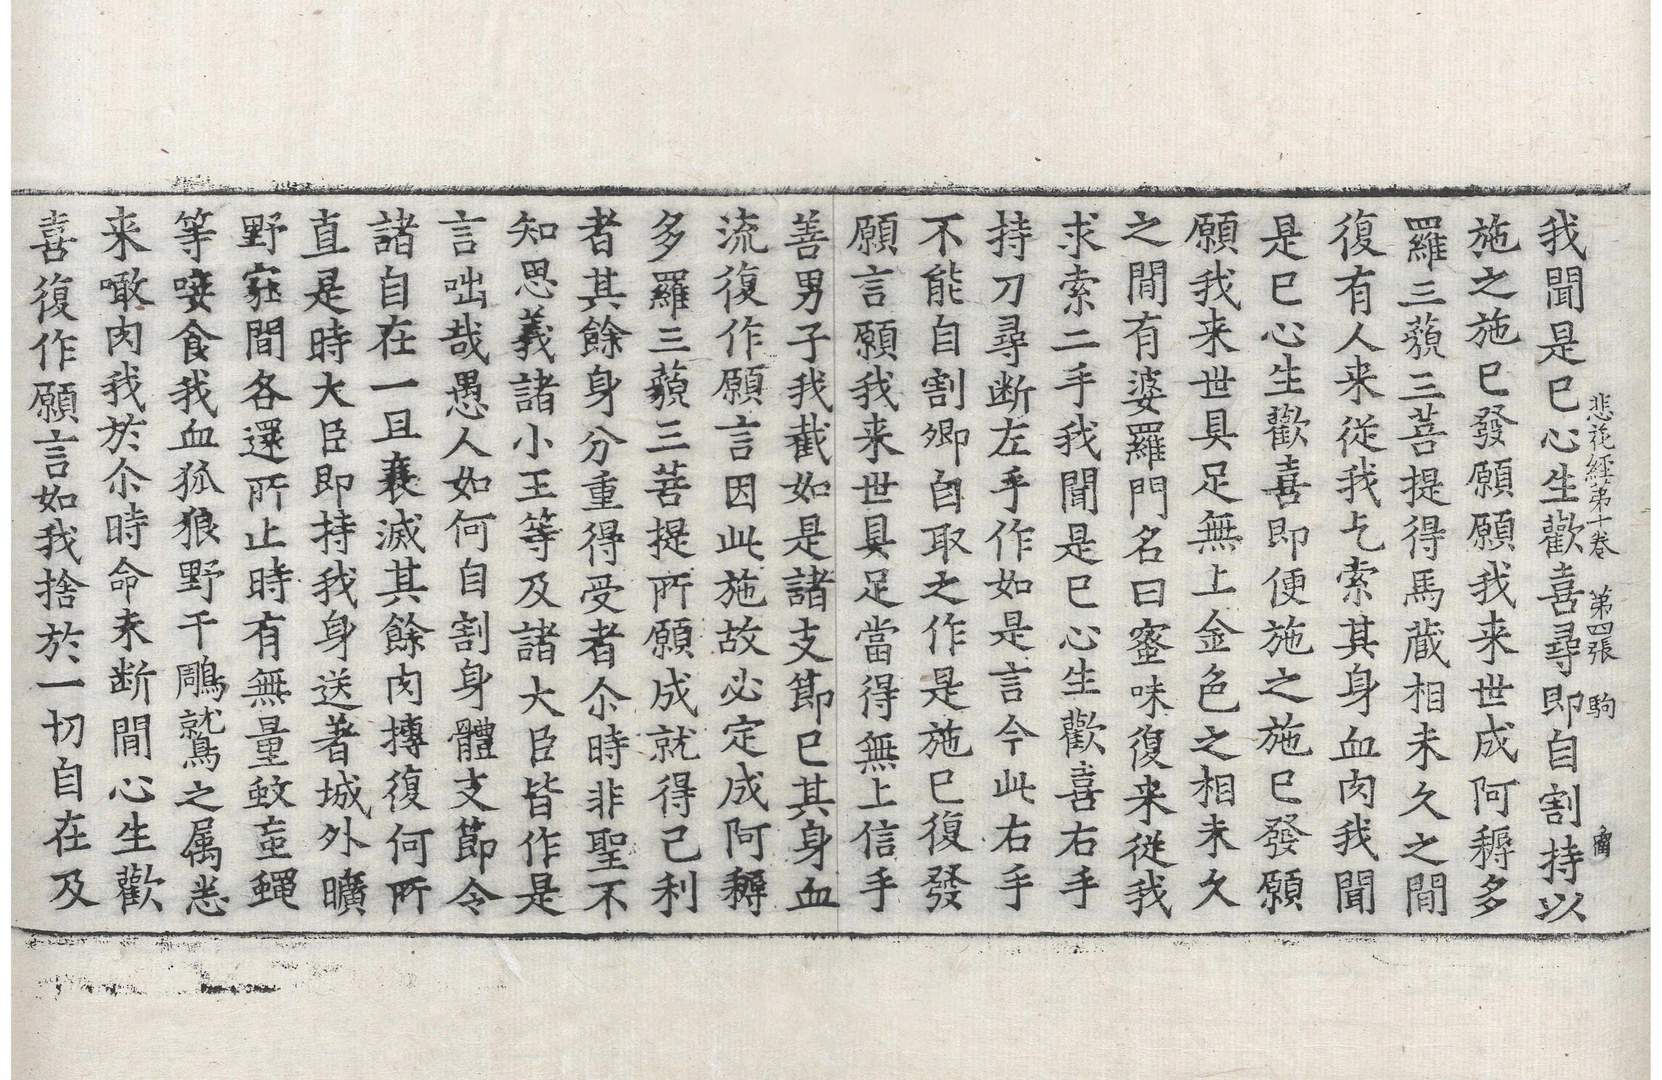 悲花經苐十卷　第四張　駒
我聞是已心生歡喜尋即自割持以
施之施已發願願我来世成阿耨多
羅三藐三菩提得馬藏相未久之間
復有人来從我乞索其身血肉我聞
是已心生歡喜即便施之施已發願
願我来世具足無上金色之相未久
之間有婆羅門名曰蜜味復来從我
求索二手我聞是已心生歡喜右手
持刀尋断左手作如是言今此右手
不能自割卿自取之作是施已復發
願言願我来世具足當得無上信手
善男子我截如是諸支節已其身血
流復作願言因此施故必定成阿耨
多羅三藐三菩提所願成就得己利
者其餘身分重得受者尒時非聖不
知思義諸小王等及諸大臣皆作是
言咄哉愚人如何自割身體支節令
諸自在一旦衰滅其餘肉摶復何所
直是時大臣即持我身送著城外曠
野冢間各還所止時有無量蚊䖟蠅
等唼食我血狐狼野干鵰鷲之属悉
来噉肉我於尒時命未断間心生歡
喜復作願言如我捨於一切自在及